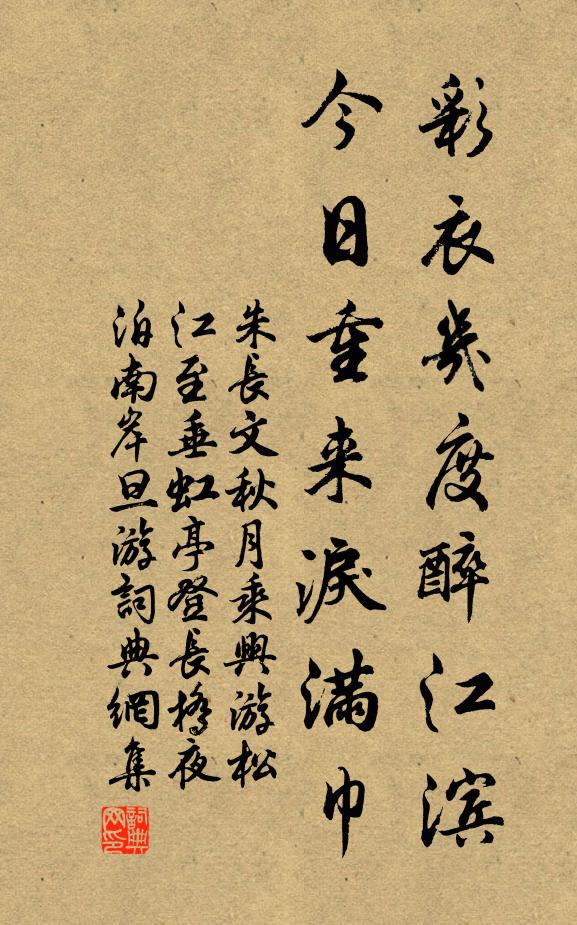 彩衣幾度醉江滨
今日重来淚滿巾
朱長文秋月乘興游松
江至垂虹亭登長橋夜
泊南岸旦游詞典網集
詞典
网印